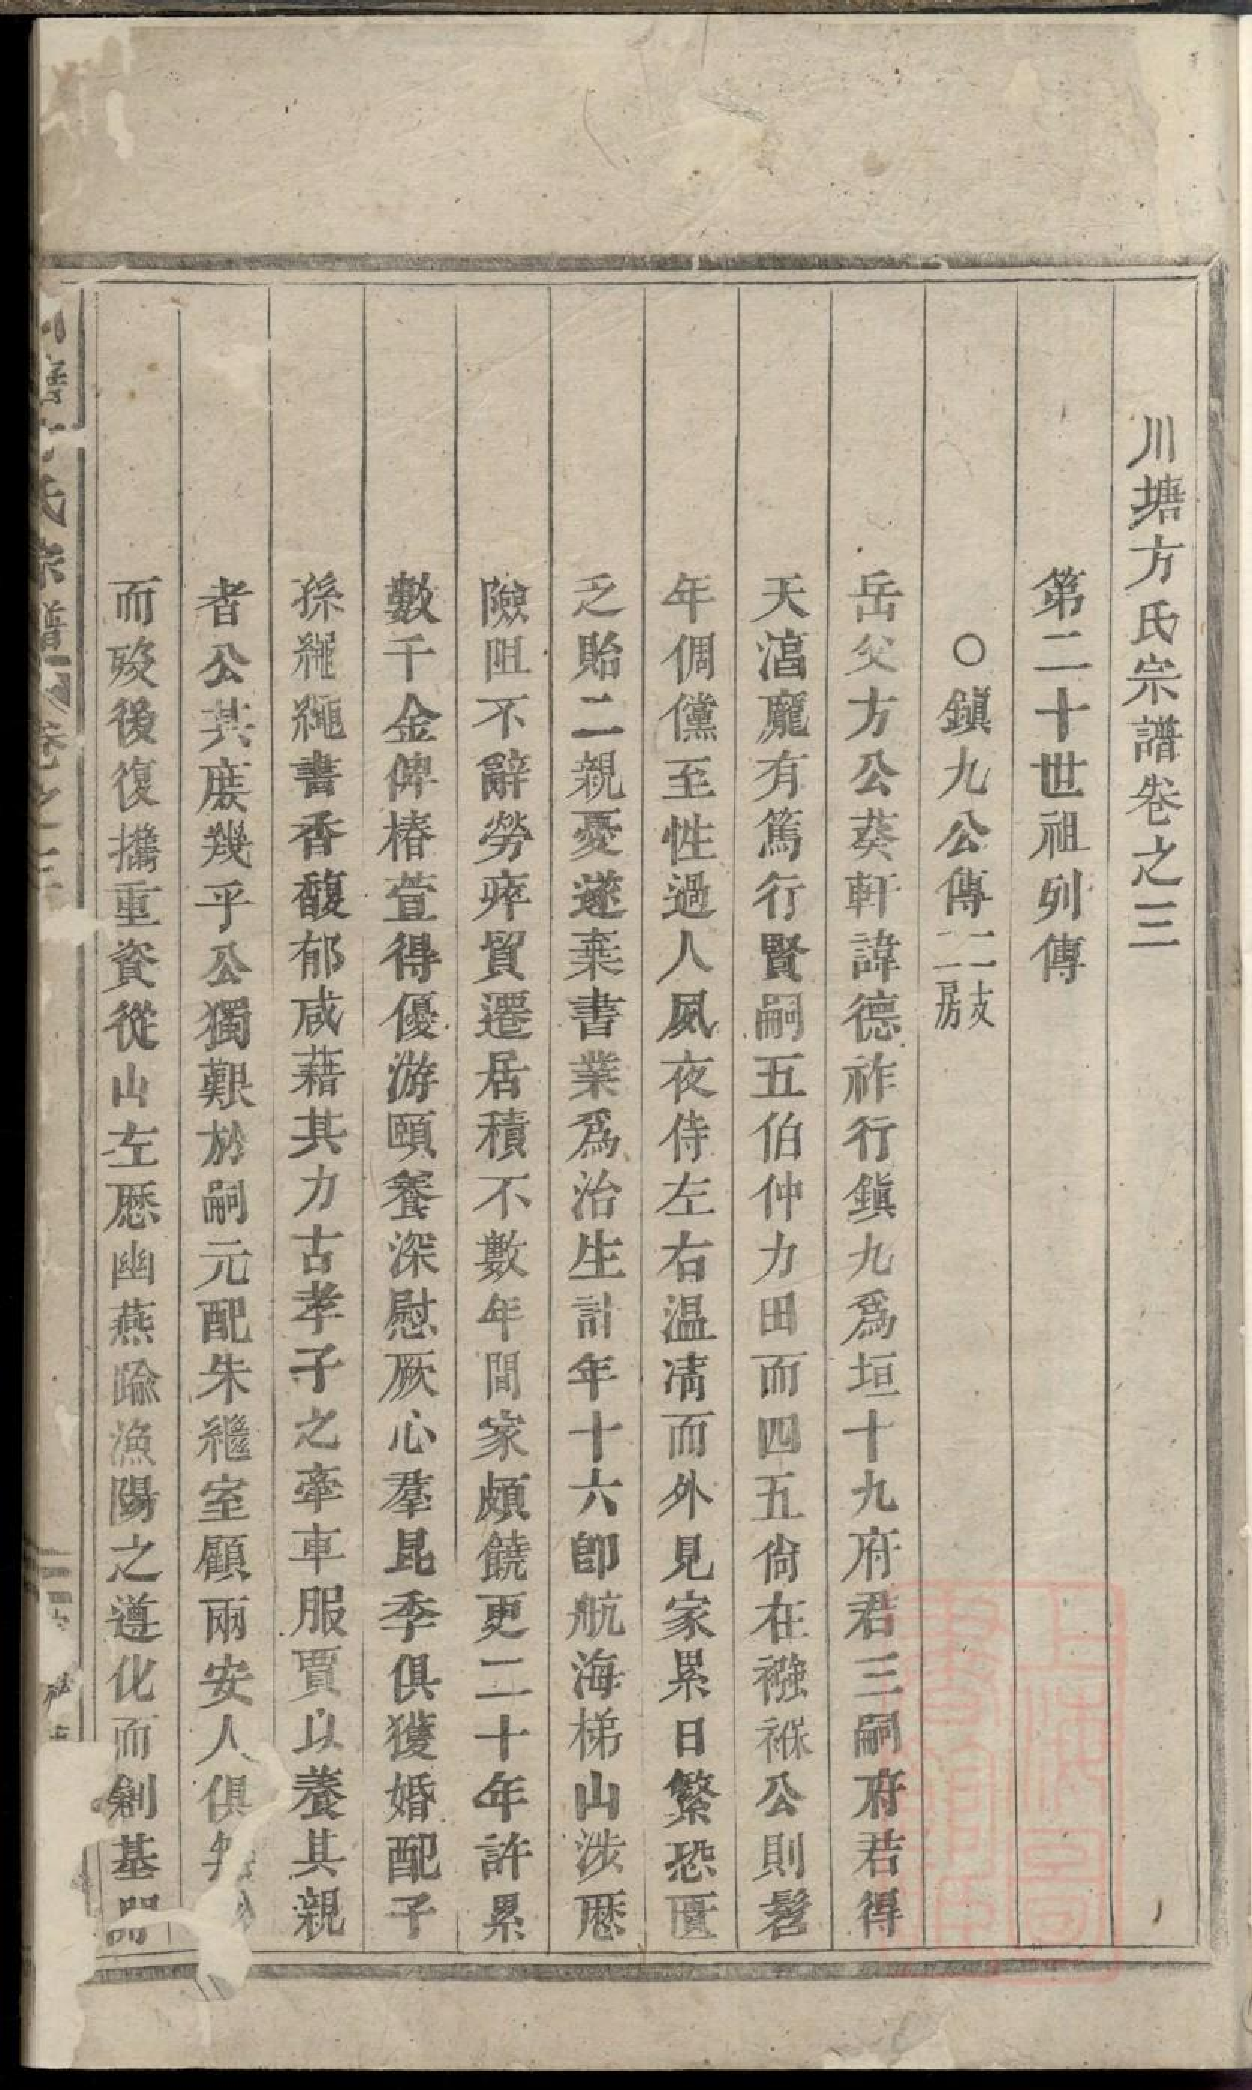 川塘方氏宗譜卷之三
第二十世祖列傳
○鎭九公傳二支二房
岳父方公葵軒諱德祚行鎭九爲垣十九府君三嗣府君得
天湻龐有篤行賢嗣五伯仲力田而四五尙在襁褓公則髫
年倜儻至性過人夙夜侍左右温凊而外見家累日繁恐匱
乏貽二親憂遂棄書業爲治生計年十六卽航海梯山涉歷
險阻不辭勞瘁貿遷居積不數年間家頗饒更二十年許累
數千金俾椿萱得優游頤養深慰厥心羣昆季俱獲婚配子
孫繩繩書香馥郁咸藉其力古孝子之牽車服賈以養其親
者公其庶幾乎公獨艱於嗣元配朱繼室顧兩安人俱無
而歿後復攜重資從山左歷幽燕踰漁陽之遵化而創基
塘方氏宗譜 卷之三
上海圖書館藏